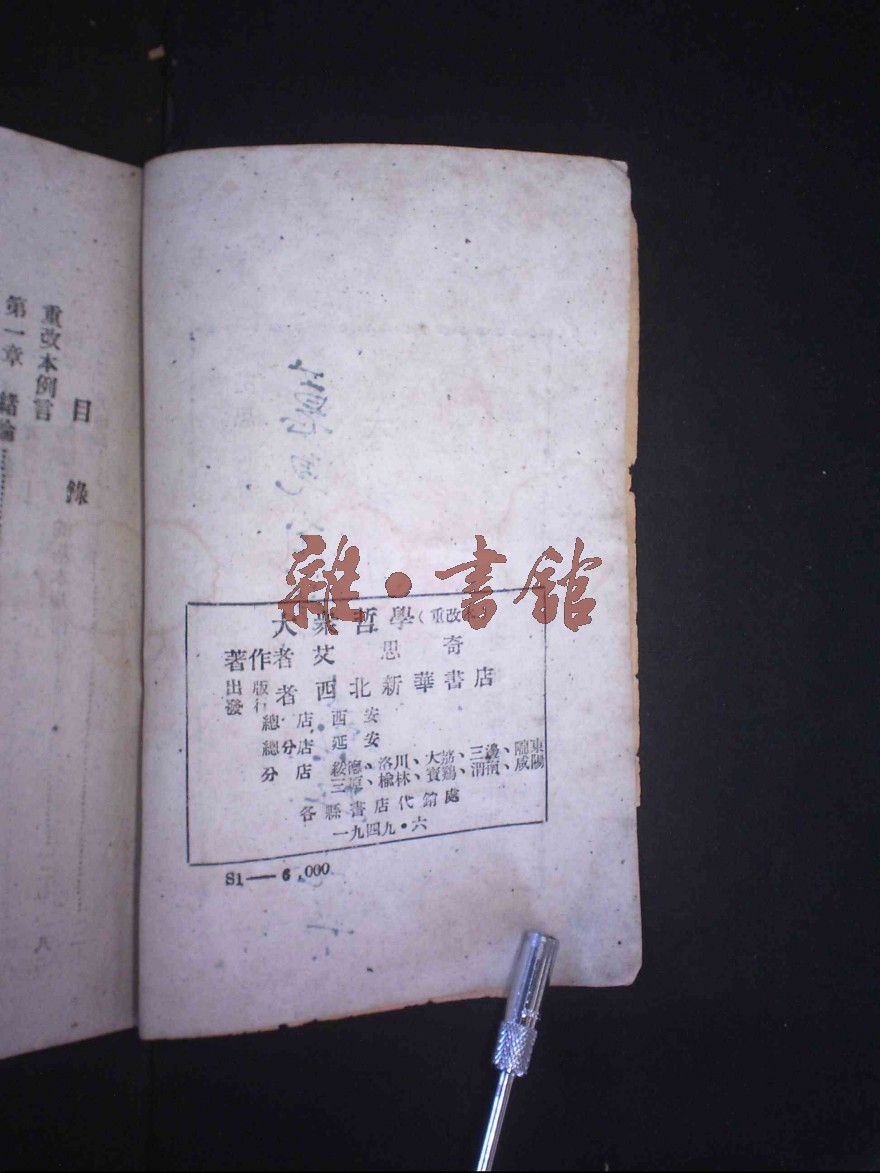 目錄
重改本例言
第一章 緒論
雜·書館
大衆哲學（重改本）
著作者 艾思奇
出版
發行
者 西北新華書店
總店 西安
總分店 延安
分店 綏德、洛川、大荔、三邊、隴東
三原、榆林、寶鷄、渭南、咸陽
各縣書店代銷處
一九四九·六
S1—6,000